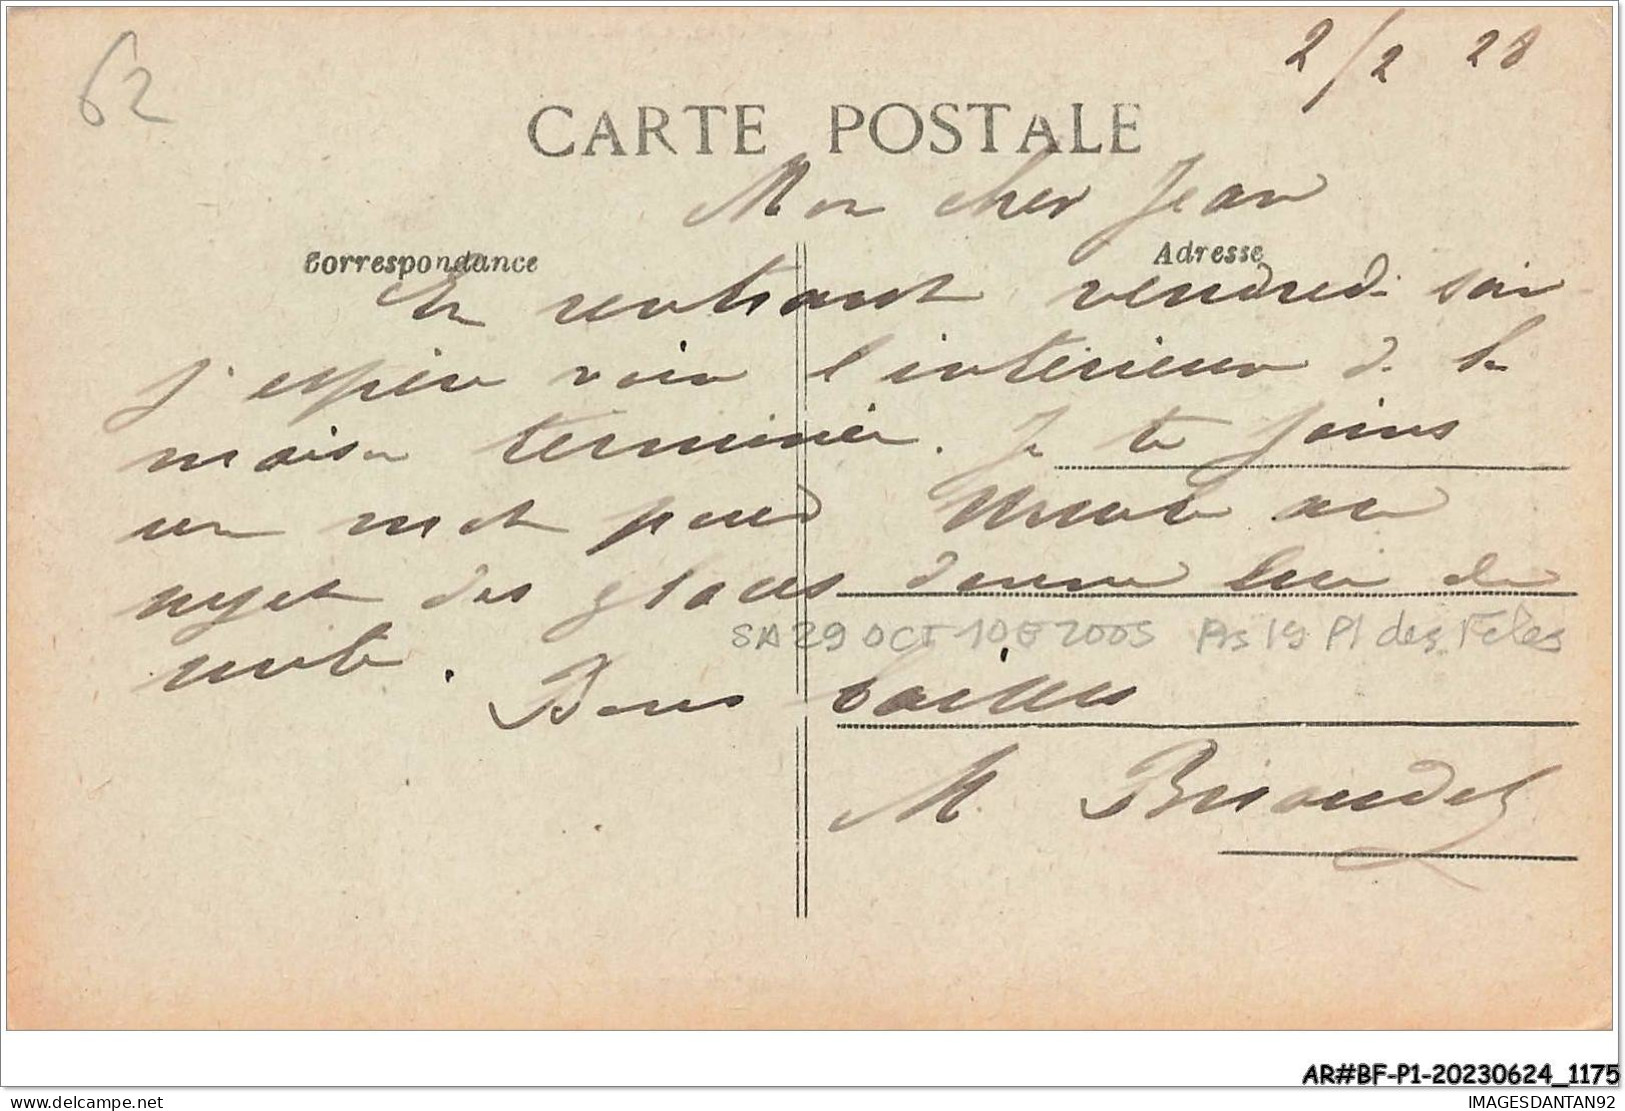 62
2/2 28
CARTE POSTALE
Mon cher Jean
Correspondance
Adresse
En rentrant vendredi soir
j'espère voir l'intérieur de la
maison terminée. Je te joins
un mot pour au
sujet des glaces donne lui de
suite.
SA 29 OCT 10E 2005 Pl des Fêtes
Bons baisers
M.
AR#BF-P1-20230624_1175
www.delcampe.net
IMAGESDANTAN92